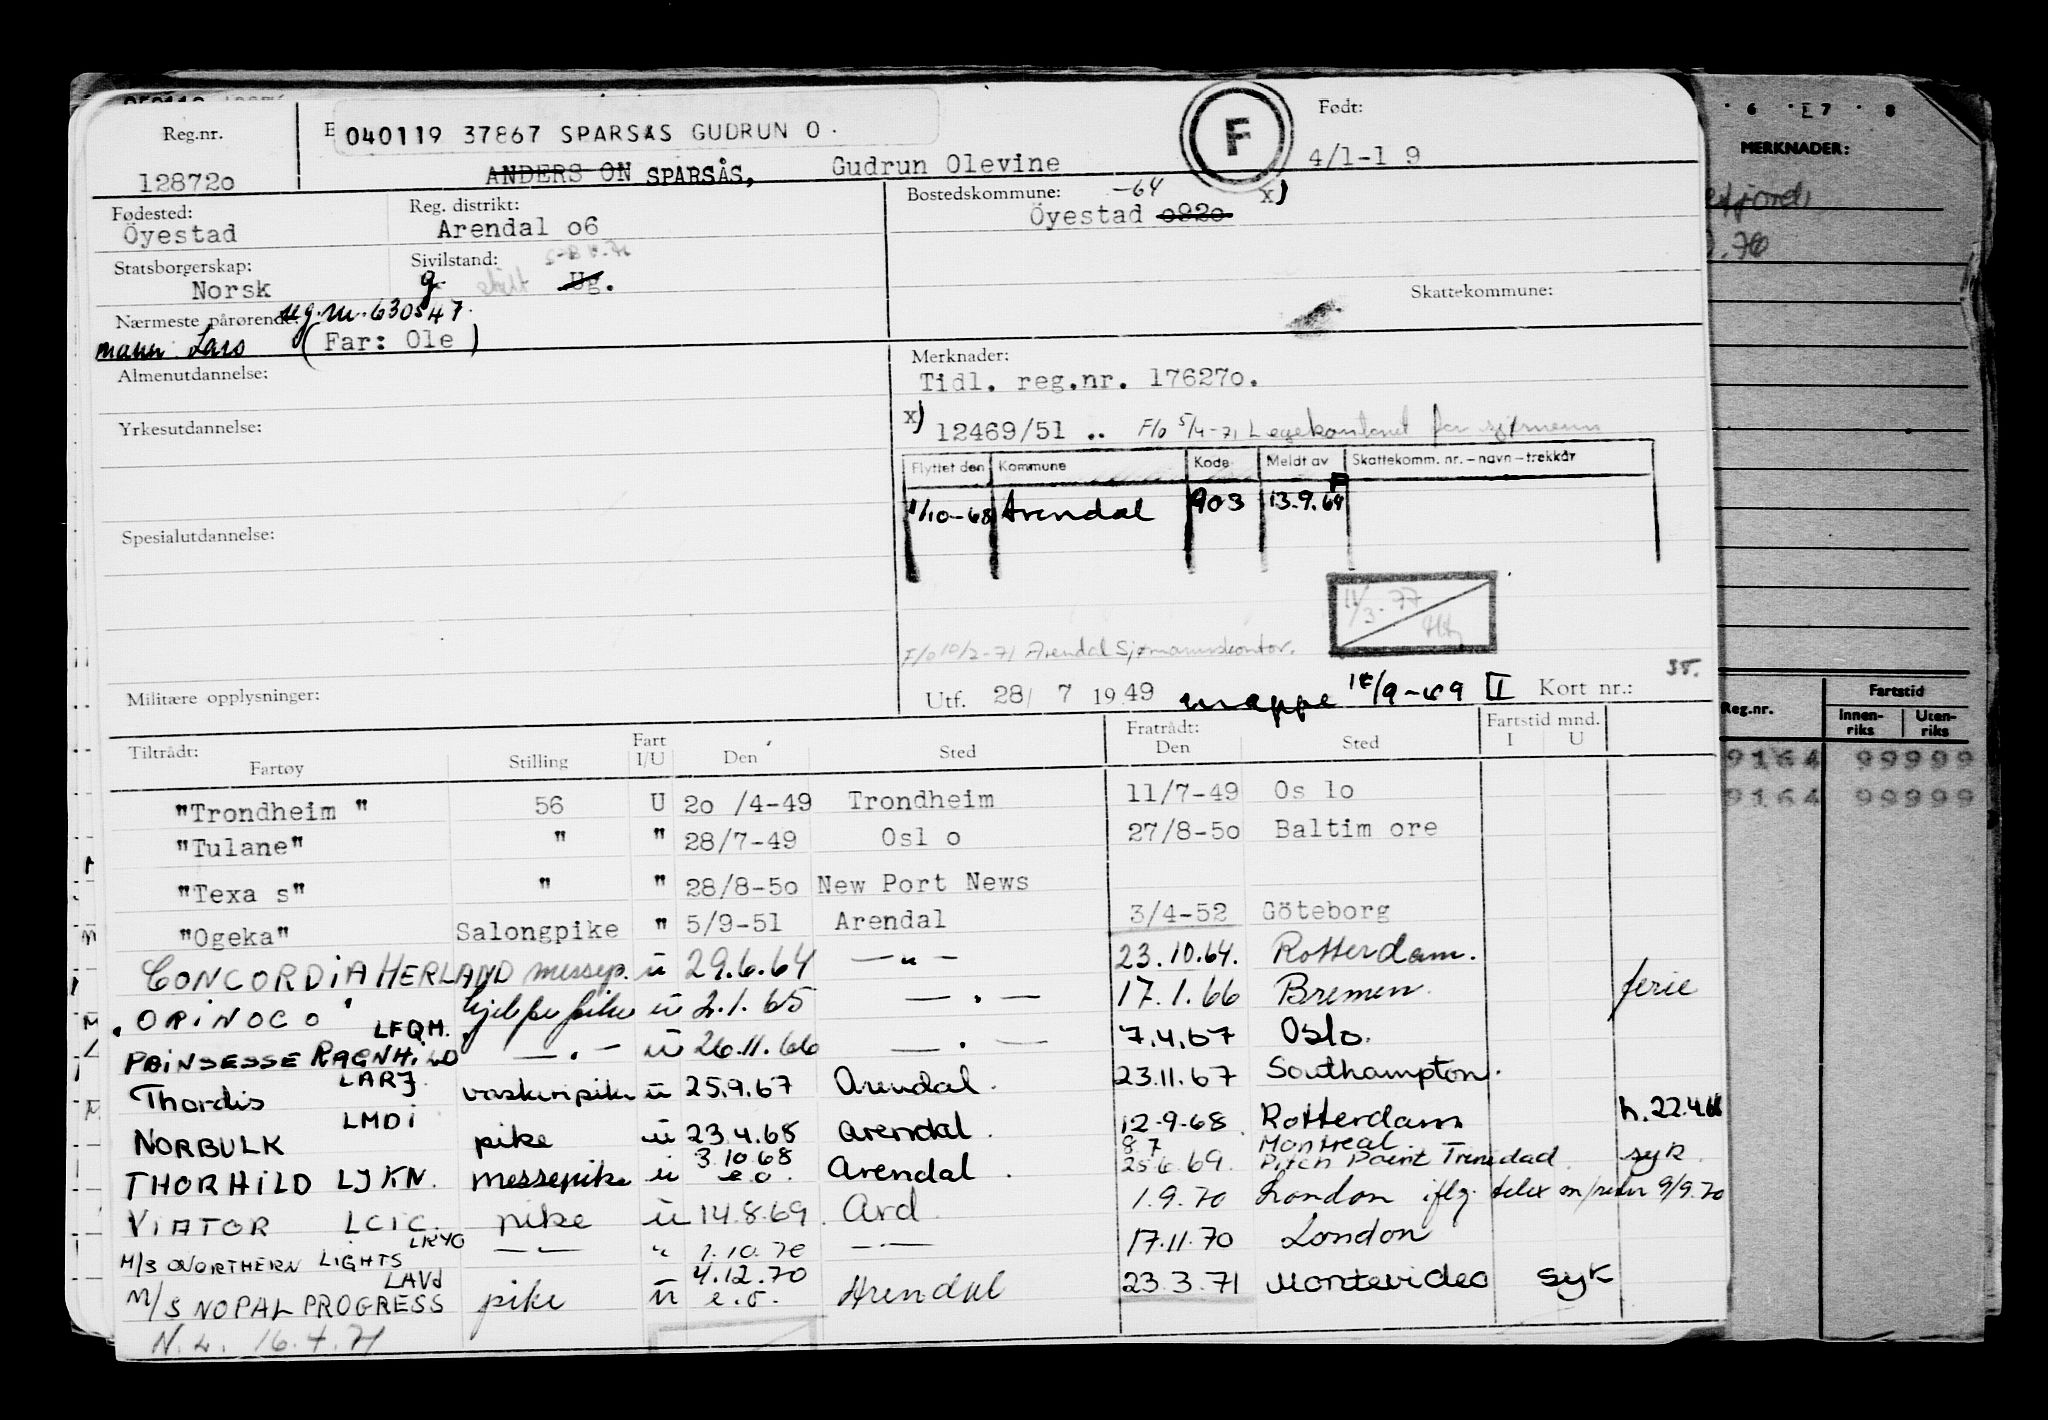 Reg.nr.
128720
040119 37867 SPARSÅS GUDRUN O.
ANDERS ON SPARSÅS, Gudrun Olevine
F
Født:
4/1-1 9
Fødested:
Öyestad
Reg. distrikt:
Arendal o6
Bostedskommune:
-64
Öyestad o92o
x)
Statsborgerskap:
Norsk
Sivilstand:
g. skilt Ug.
Skattekommune:
Nærmeste pårørende: ug.m. 630547.
mann Lars (Far: Ole )
Almenutdannelse:
Yrkesutdannelse:
Spesialutdannelse:
Militære opplysninger:
Merknader:
Tidl. reg.nr. 17627o.
x) 12469/51 .. F/o 5/4-71 Legekontoret for sjømenn
Flyttet den Kommune Kode Meldt av Skattekomm. nr. – navn – trekkår
1/10-68 Arendal 903 13.9.69 F
11/3-77
F/o 10/2-71 Arendal Sjømannskontor.
35.
Utf. 28/ 7 19 49 mappe 18/9-69 II Kort nr.:
Tiltrådt: Fartøy Stilling Fart I/U Den Sted Fratrådt: Den Sted Fartstid mnd. I U
"Trondheim " 56 U 2o /4-49 Trondheim 11/7-49 Os lo
"Tulane" " " 28/7-49 Osl o 27/8-5o Baltim ore
"Texa s" " " 28/8-5o New Port News
"Ogeka" Salongpike " 5/9-51 Arendal 3/4-52 Göteborg
CONCORDIA HERLAND messep. u 29.6.64 — " — 23.10.64. Rotterdam.
"ORINOCO" hjelpepike u 2.1.65 — " — 17.1.66 Bremen. ferie
PRINSESSE RAGNHILD LFQM. — " — u 26.11.66 — " — 7.4.67 Oslo.
Thordis LARJ. vaskeripike u 25.9.67 Arendal. 23.11.67 Southampton.
NORBULK LMDI pike u 23.4.68 Arendal. 12.9.68. Rotterdam h. 22.4.68
THORHILD LJKN. messepike u 3.10.68 e.o. Arendal. 8 7 Montreal
25.6.69. Pitch Point Trinidad. syk.
VIATOR LCIC. pike u 14.8.69. Ard. 1.9.70 London iflg. telex m/reder 9/9.70
M/S NORTHERN LIGHTS LKYG — " — " 1.10.70 — " — 17.11.70 London
M/S NOPAL PROGRESS LAVD pike u 4.12.70 e.o. Arendal 23.3.71 Montevideo syk
N.L. 16.4.71
6 7 8
MERKNADER:
Reg.nr. Fartstid
Innen-riks Uten-riks
9164 99999
9164 99999